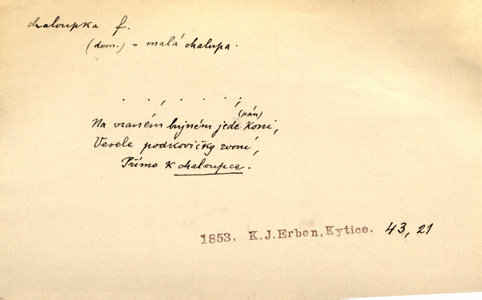 chaloupka f.
(dem.) = malá chalupa.
. . , . . . , ;
(pán)
Na vraném bujném jede koni,
Vesele podkovičky zvoní,
Přímo k chaloupce.
1853. K.J.Erben, Kytice. 43, 21